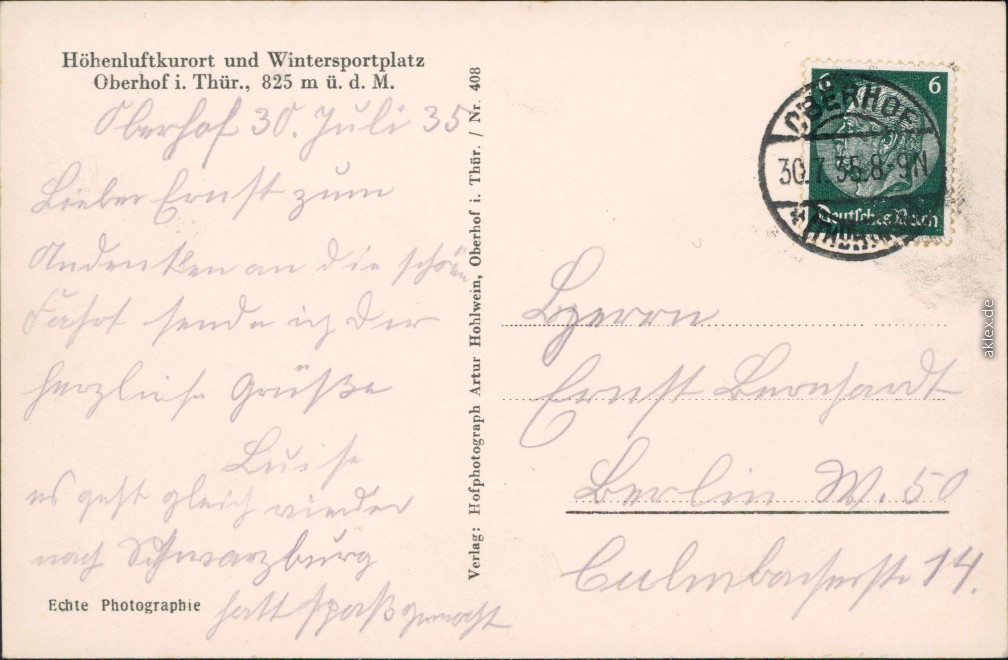 Höhenluftkurort und Wintersportplatz
Oberhof i. Thür., 825 m ü. d. M.
Oberhof 30. Juli 35
Lieber Ernst zum
Andenken an die schöne
Fahrt sende ich dir
herzliche Grüße
Luise
es geht gleich wieder
nach Schwarzburg
hatt spaß gemacht
Echte Photographie
Verlag: Hofphotograph Artur Hohlwein, Oberhof i. Thür. / Nr. 408
6 6
Deutsches Reich
OBERHOF
30.7.35.8-9N
Herrn
Ernst Bernhardt
Berlin W. 50
Culmbacherstr 14.
aklex.de